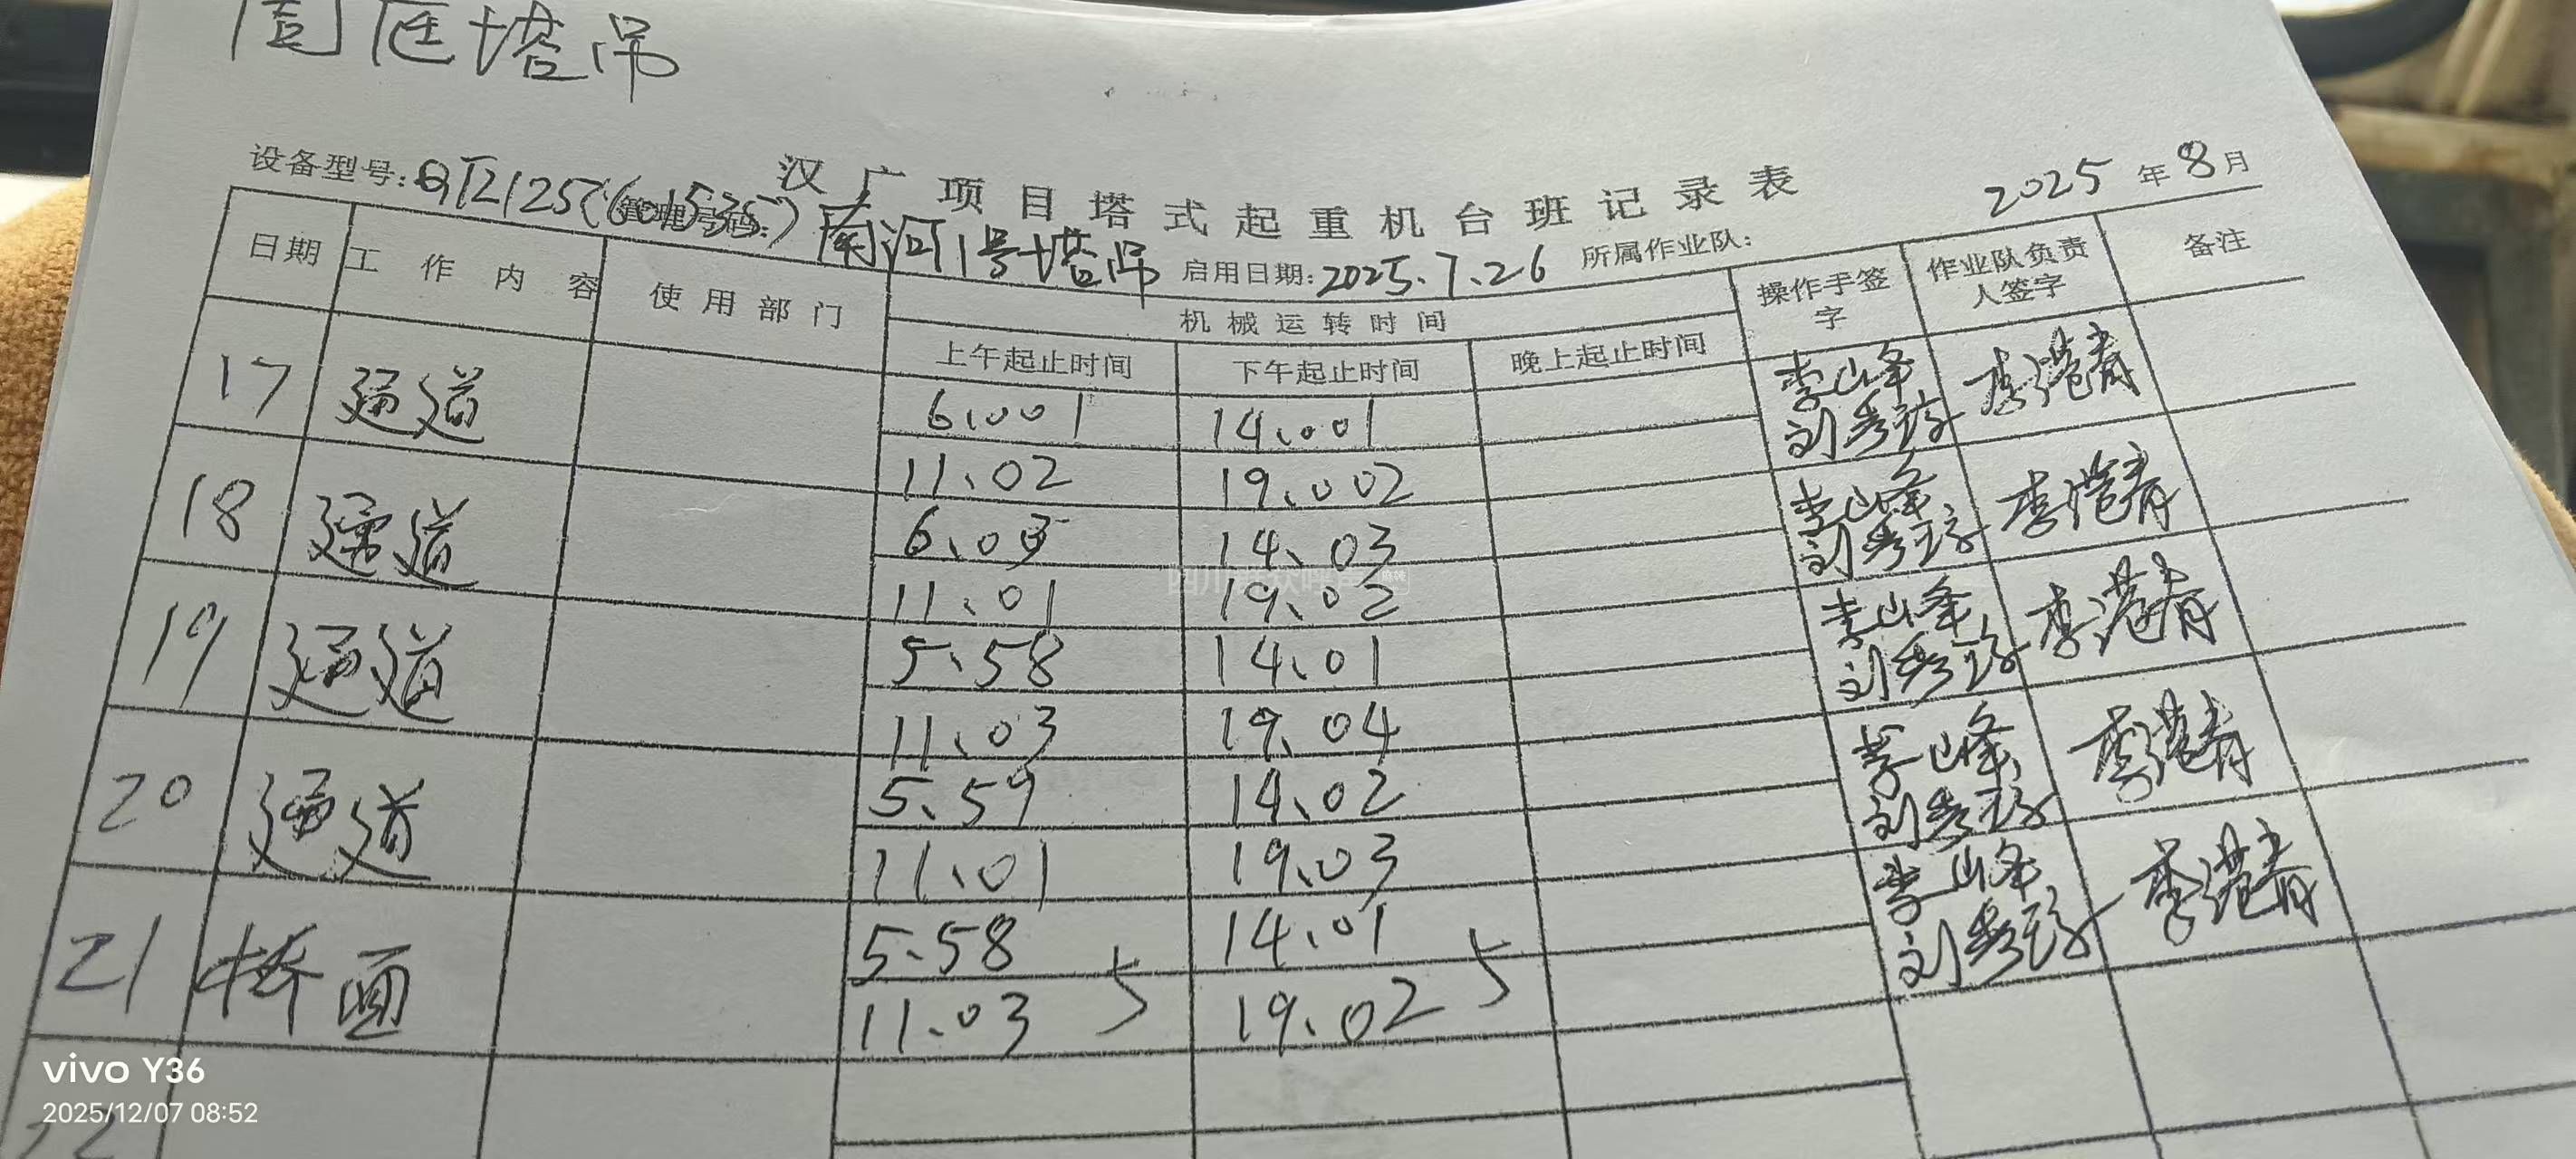 塔吊
汉广项目塔式起重机台班记录表
2025年8月
设备型号:QTZ125(6015-35) 管理号码: 南河1号塔吊 启用日期:2025.7.26 所属作业队:
日期 工作内容 使用部门 机械运转时间 操作手签字 作业队负责人签字 备注
上午起止时间 下午起止时间 晚上起止时间
17 通道 6.001 14.001 李山峰 李港青
11.02 19.002
18 通道 6.03 14.03 李山峰 李港青
11.01 19.02
19 通道 5.58 14.01 李山峰 李港青
11.03 19.04
20 通道 5.59 14.02 李山峰 李港青
11.01 19.03
21 桥面 5.58 14.01 李山峰 李港青
11.03 5 19.02 5
22
vivo Y36
2025/12/07 08:52